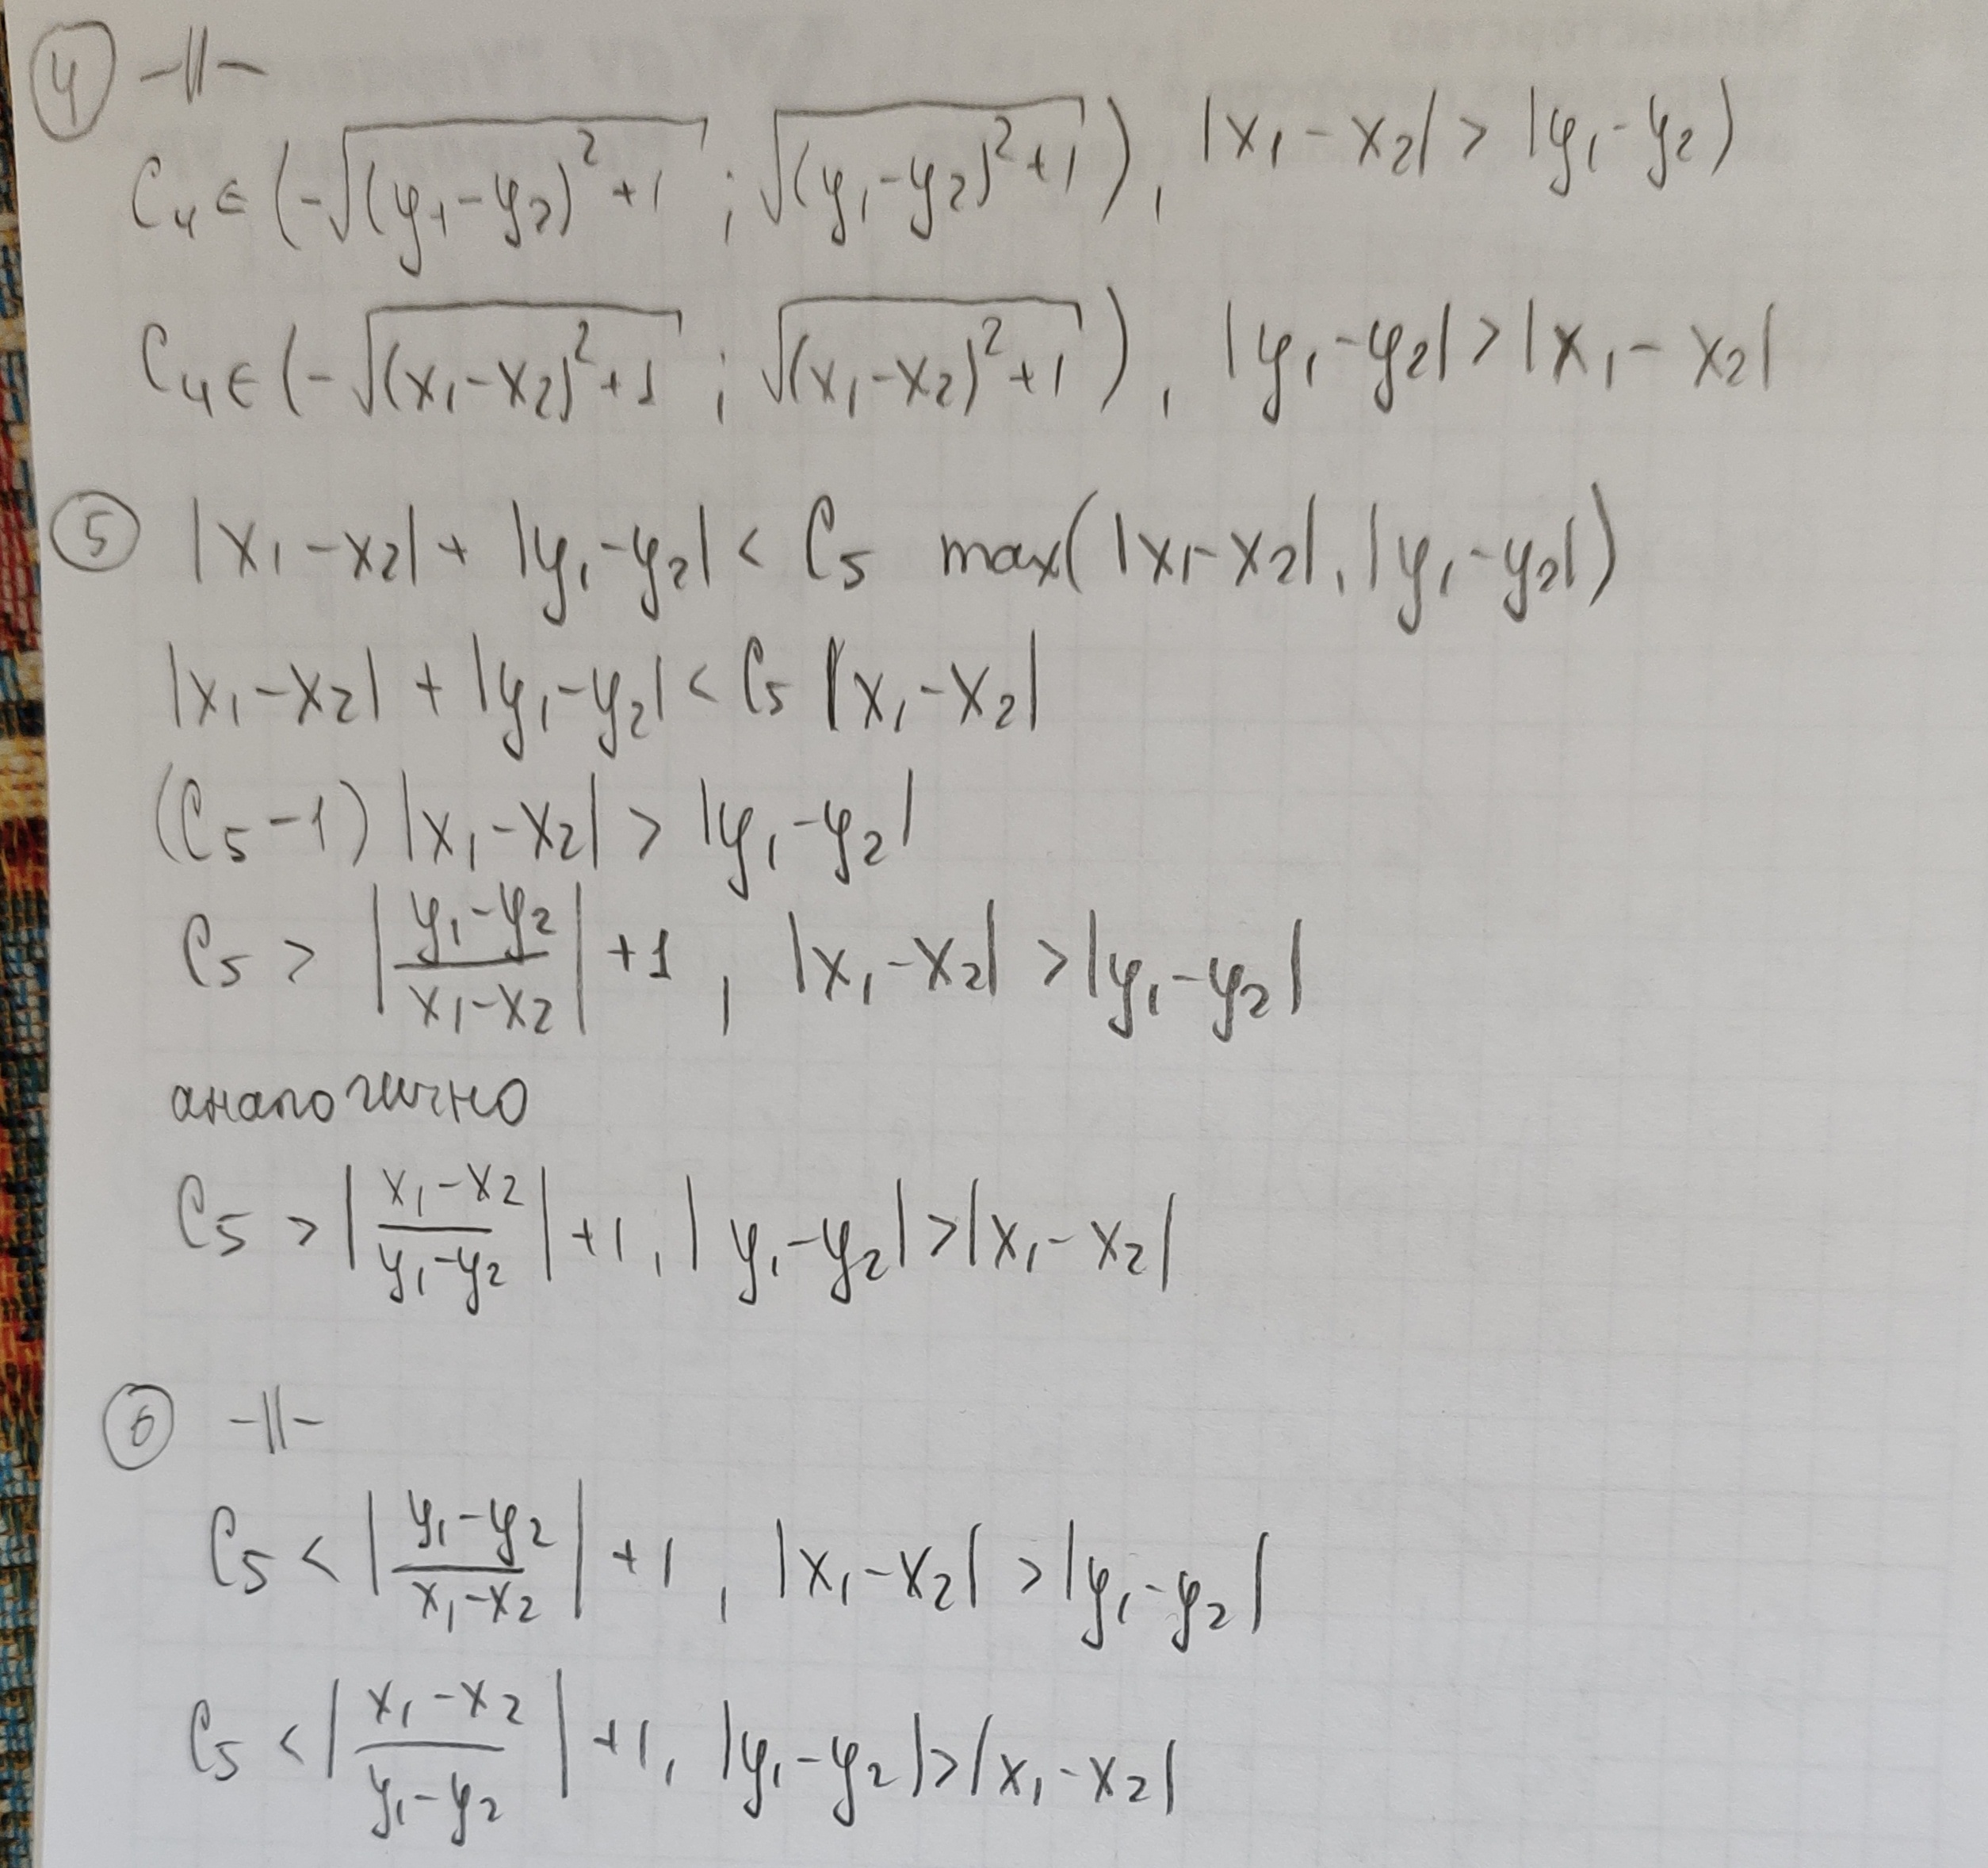 ④ -||-
C₄ ∈ (-√((y₁-y₂)²+1) ; √((y₁-y₂)²+1)), |x₁-x₂| > |y₁-y₂)
C₄ ∈ (-√((x₁-x₂)²+1) ; √((x₁-x₂)²+1)), |y₁-y₂| > |x₁-x₂|
⑤ |x₁-x₂| + |y₁-y₂| < C₅ max(|x₁-x₂|, |y₁-y₂|)
|x₁-x₂| + |y₁-y₂| < C₅ |x₁-x₂|
(C₅-1) |x₁-x₂| > |y₁-y₂|
C₅ > |(y₁-y₂)/(x₁-x₂)| +1, |x₁-x₂| > |y₁-y₂|
аналогично
C₅ > |(x₁-x₂)/(y₁-y₂)| +1, |y₁-y₂| > |x₁-x₂|
⑥ -||-
C₅ < |(y₁-y₂)/(x₁-x₂)| +1, |x₁-x₂| > |y₁-y₂|
C₅ < |(x₁-x₂)/(y₁-y₂)| +1, |y₁-y₂| > |x₁-x₂|